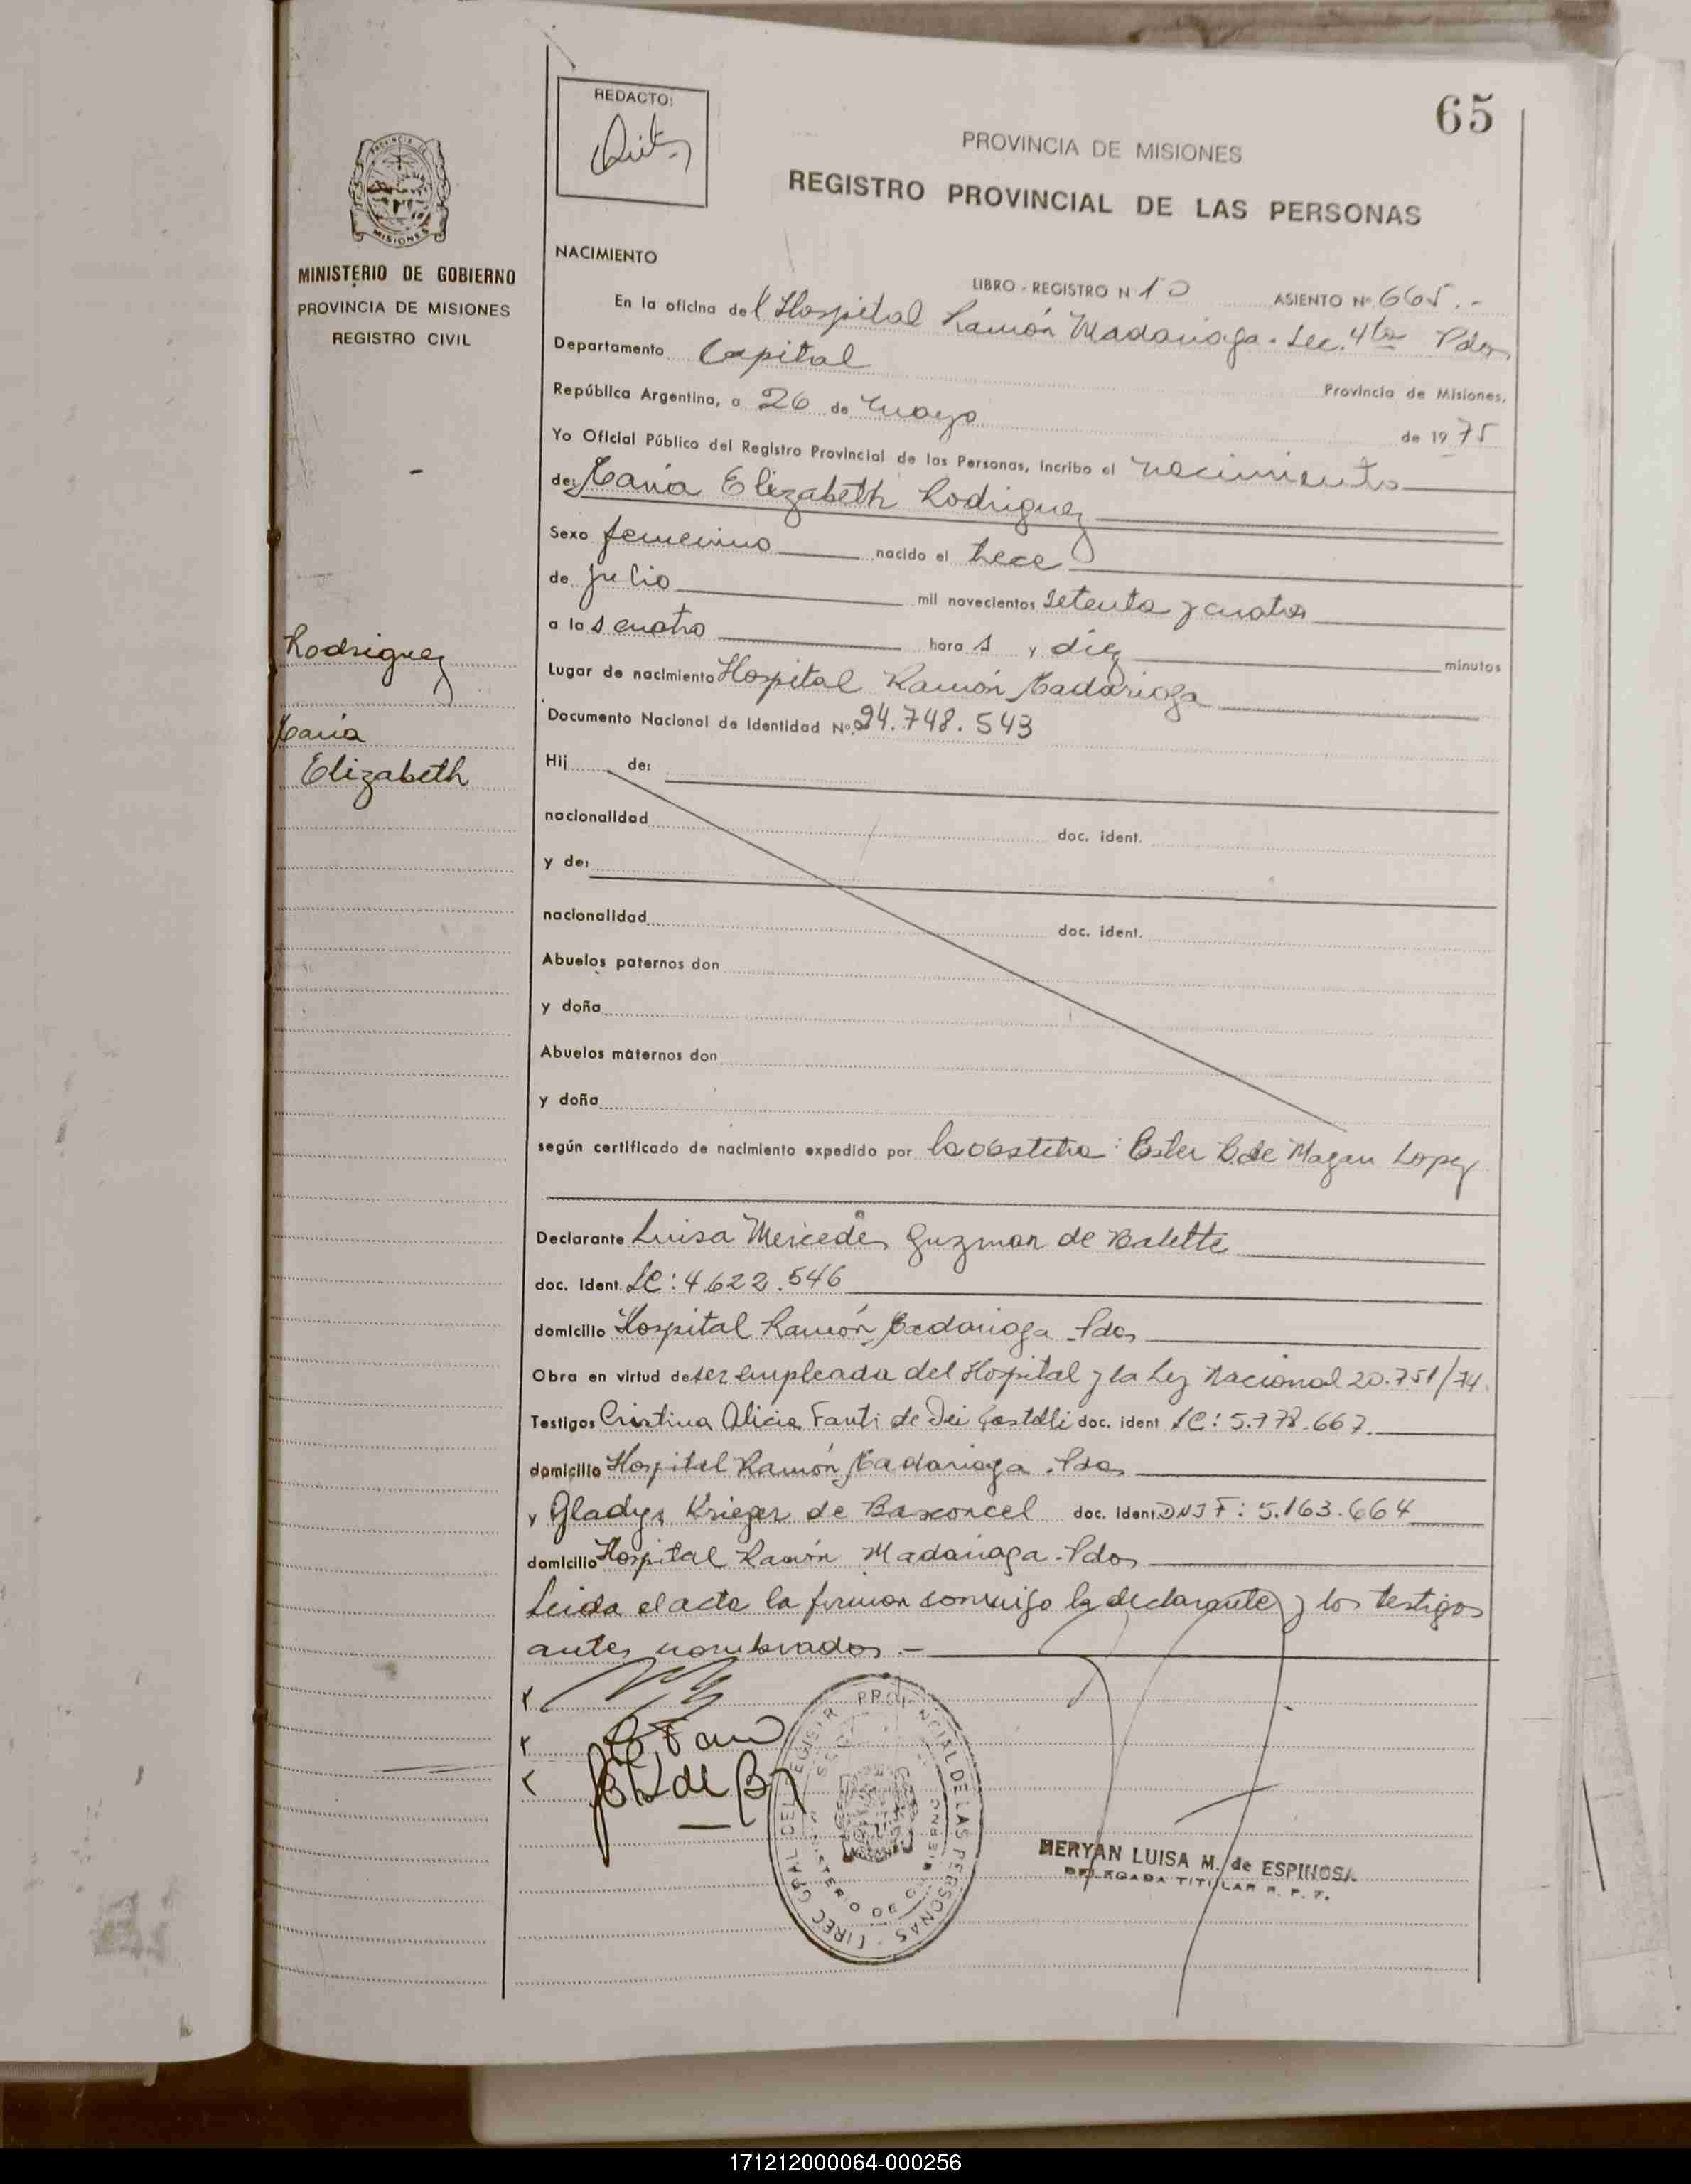 65
REDACTO:
PROVINCIA DE MISIONES
REGISTRO PROVINCIAL DE LAS PERSONAS
MISIONES
MINISTERIO DE GOBIERNO
PROVINCIA DE MISIONES
REGISTRO CIVIL
NACIMIENTO
LIBRO - REGISTRO N 10 ASIENTO Nº 665.-
En la oficina del Hospital Ramón Madariaga. Sec. 4ta Pdas
Departamento Capital
Provincia de Misiones,
República Argentina, a 26 de mayo de 1975
Yo Oficial Público del Registro Provincial de las Personas, incribo el nacimiento
de: María Elizabeth Rodriguez
Sexo femenino nacido el trece
de julio mil novecientos setenta y cuatro
a las cuatro horas y diez minutos
Rodriguez
Lugar de nacimiento Hospital Ramón Madariaga
María
Documento Nacional de Identidad Nº 24.748.543
Elizabeth
Hij de:
nacionalidad doc. ident.
y de:
nacionalidad doc. ident.
Abuelos paternos don
y doña
Abuelos maternos don
y doña
según certificado de nacimiento expedido por la obstetra: Ester de Magan Lopez
Declarante Luisa Mercedes Guzman de Balette
doc. Ident. LC: 4.622.546
domicilio Hospital Ramón Madariaga Pdas
Obra en virtud de ser empleada del Hospital y la Ley Nacional 20.751/74.
Testigos Cristina Alicia Fanti de Dei Castelli doc. ident LC: 5.778.667.
domicilio Hospital Ramón Madariaga. Pdas
y Gladys Krieger de Basconcel doc. Ident DNI F: 5.163.664
domicilio Hospital Ramón Madariaga-Pdas
Leida el acta la firman conmigo la declarante y los testigos
antes nombrados.-
DIREC GRAL DEL REGISTR PROVINCIAL DE LAS PERSONAS
MINISTERIO DE GOBIERNO
MERYAN LUISA M. de ESPINOSA
DELEGADA TITULAR R. P. P.
171212000064-000256